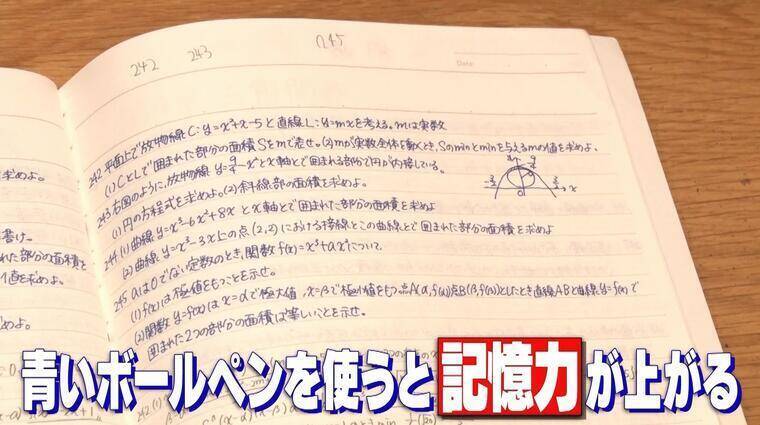 242 243 245
Date
242 平面上で放物線C:y=x²+x-5と直線L:y=mxを考える。mは実数
(1) CとLで囲まれた部分の面積Sをmで表せ。(2) mが実数全体を動くとき、Sのminとminを与えるmの値を求めよ。
243 右図のように、放物線y=9/4-x²とx軸とで囲まれる部分で円が内接している。
(1) 円の方程式を求めよ。(2) 斜線部の面積を求めよ。
244 (1) 曲線y=x³-6x²+8xとx軸とで囲まれた部分の面積を求めよ
(2) 曲線y=x³-3x上の点(2,2)における接線とこの曲線とで囲まれた部分の面積を求めよ
245 aは0でない定数のとき、関数f(x)=x³+ax²について、
(1) f(x)は極値をもつことを示せ。
(2) 関数y=f(x)はx=αで極大値、x=βで極小値をもつ。点A(α,f(α))点B(β,f(β))としたとき直線ABと曲線y=f(x)で
囲まれた2つの部分の面積は等しいことを示せ。
求めよ。
書け。
た部分の面積を
値を求めよ。
めよ。
青いボールペンを使うと記憶力が上がる